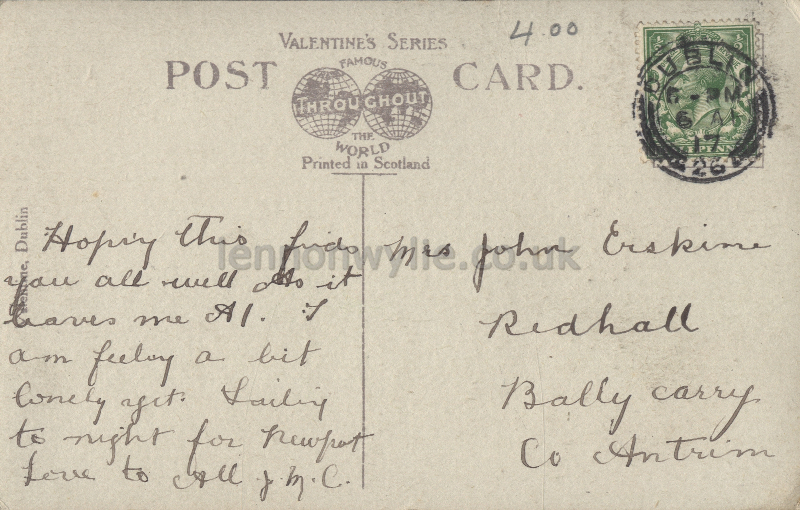 4.00
VALENTINE'S SERIES
POST CARD.
FAMOUS
THROUGHOUT
THE
WORLD
Printed in Scotland
DUBLIN
17
26
Dublin
lennonwylie.co.uk
Hoping this finds
you all well As it
leaves me A1. I
am feeling a bit
lonely yet. Sailing
to night for Newport
Love to All J. M. C.
Mrs John Erskine
Redhall
Bally carry
Co Antrim